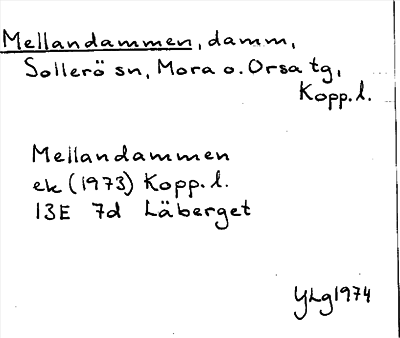 Mellandammen, damm,
Sollerö sn, Mora o. Orsa tg,
Kopp. l.
Mellandammen
ek (1973) Kopp. l.
13E 7d Läberget
YLg 1974